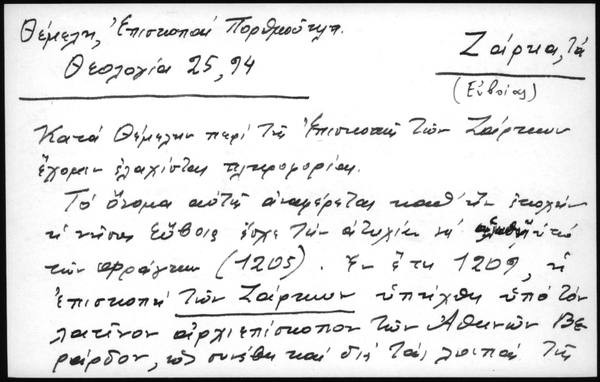 Θέμελη, Ἐπισκοπαί Πορθμοῦ
Θεολογία 25, 94
Ζάρκα, τά
(Εὐβοίας)
Κατά Θέμελην περί τῆς Ἐπισκοπῆς τῶν Ζάρκων
ἔχομεν ἐλαχίστας πληροφορίας.
Τό ὄνομα αὐτῆς ἀναφέρεται καθ' ἥν ἐποχήν
ἡ νῆσος Εὔβοια ἔσχε τήν ἀτυχίαν νά ὑπό
τῶν Φράγκων (1205). Ἐν ἔτει 1209, ἡ
ἐπισκοπή τῶν Ζάρκων ὑπήχθη ὑπό τόν
λατῖνον ἀρχιεπίσκοπον τῶν Ἀθηνῶν Βε
ράρδον, ὡς συνέβη καί διά τάς λοιπάς τῆς